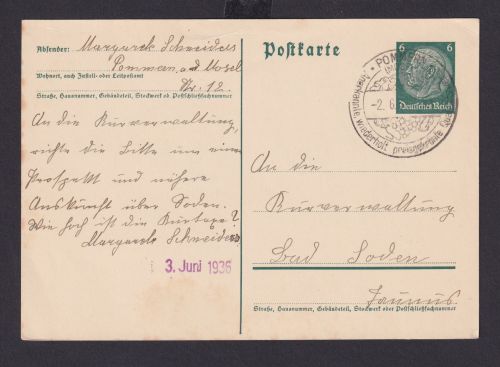 Absender: Margarete Schneiders
Pommern a.d. Mosel
Wohnort, auch Zustell- oder Leitpostamt
Nr. 12.
Straße, Hausnummer, Gebäudeteil, Stockwerk od. Postschließfachnummer
An die Kurverwaltung,
richte die Bitte um einen
Prospekt und nähere
Auskunft über Soden.
Wie hoch ist die Kurtaxe?
Margarete Schneiders
3. Juni 1936
Postkarte
6 6
Deutsches Reich
POMMERN
-2.6.
Anerkannte wiederholt preisgekrönte
An die
Kurverwaltung
Bad Soden
Taunus.
Straße, Hausnummer, Gebäudeteil, Stockwerk oder Postschließfachnummer